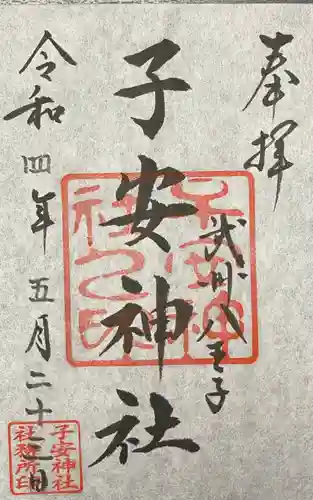 奉拝
武州八王子
子安神社
令和四年五月二十七日
子安神社
社務所印